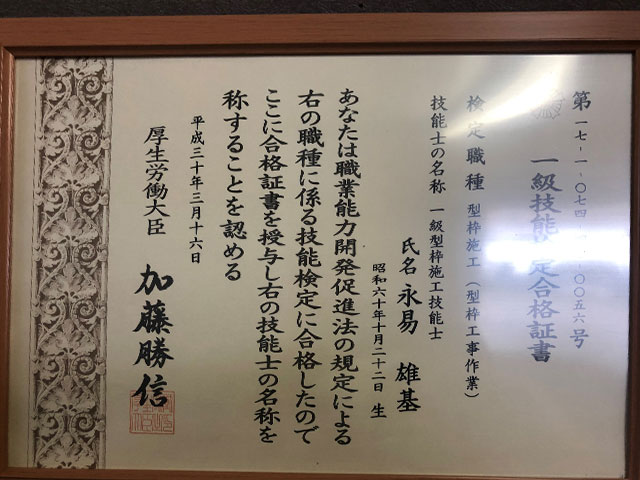 第一七-一-〇七四-　-〇〇五六号
一級技能検定合格証書
検定職種 型枠施工（型枠工事作業）
技能士の名称 一級型枠施工技能士
氏名 永易 雄基
昭和六十年十月二十二日 生
あなたは職業能力開発促進法の規定による
右の職種に係る技能検定に合格したので
ここに合格証書を授与し右の技能士の名称を
称することを認める
平成三十年三月十六日
厚生労働大臣
加藤勝信